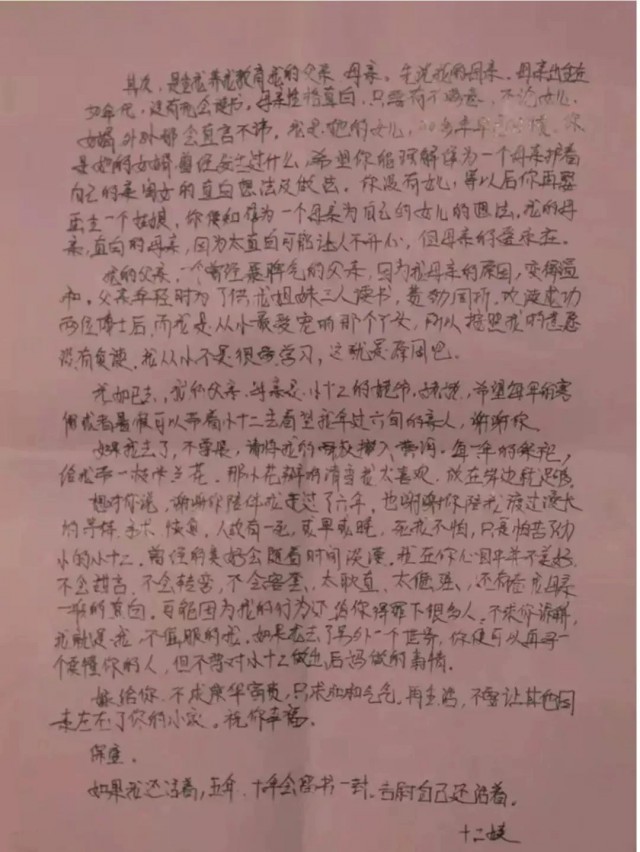 其次,是生我养我教育我的父亲母亲。先说我的母亲。母亲出生在
50年代,没有机会读书,母亲性格直白,只要有不满意,不论女儿
女婿外孙都会直言不讳,我是她的女儿,
是她的女婿曾经女士过什么,希望你能理解作为一个母亲护着
自己的亲闺女的直白想法及做法。你没有女儿,等以后你再娶
再生一个姑娘,你便知作为一个母亲为自己的女儿的想法。我的母
亲,直白的母亲,因为太直白可能让人不开心,但母亲的爱永在。
我的父亲,一个曾经暴脾气的父亲,因为我母亲的原因,变得温
和。父亲年轻时为了供我姐妹三人读书,费劲周折,欢送成功
两位博士后,而我是从小最受宠的那个丫头,所以按照我的意愿
没有复读。我从小不是很爱学习,这就是原因吧。
尤如已去,我的父亲、母亲是小十二的姥爷、姥姥,希望每年的寒
假或者暑假可以带着小十二去看望我年过六旬的亲人,谢谢你。
如果我去了,不要哭,请将我的两散撒入黄河。每一年的祭祀,
给我带一枝 兰花。那小花瓣的清香我太喜欢,放在岸边就足够。
想对你说,谢谢你陪伴我走过了六年,也谢谢你陪我渡过漫长
的寻体、手术、恢复,人故有一死,或早或晚,死我不怕,只是怕苦了幼
小的小十二。曾经的美好会随着时间淡漠。我在你心目中并不美好,
不会甜言,不会转弯,不会 ,太耿直、太倔强、还有着我母亲
一样的直白。可能因为我的行为给你得罪下很多人,不求你谅解,
我就是我,不屈服的我。如果我去了另外一个世界,你便可以再寻一
个读懂你的人,但不要对小十二做出后妈做的事情。
嫁给你,不求荣华富贵,只求和和气气。再生活,不要让其他因
素左右了你的小家。祝你幸福。
保重。
如果我还活着,五年、十年会留书一封,告慰自己还活着。
十二妹